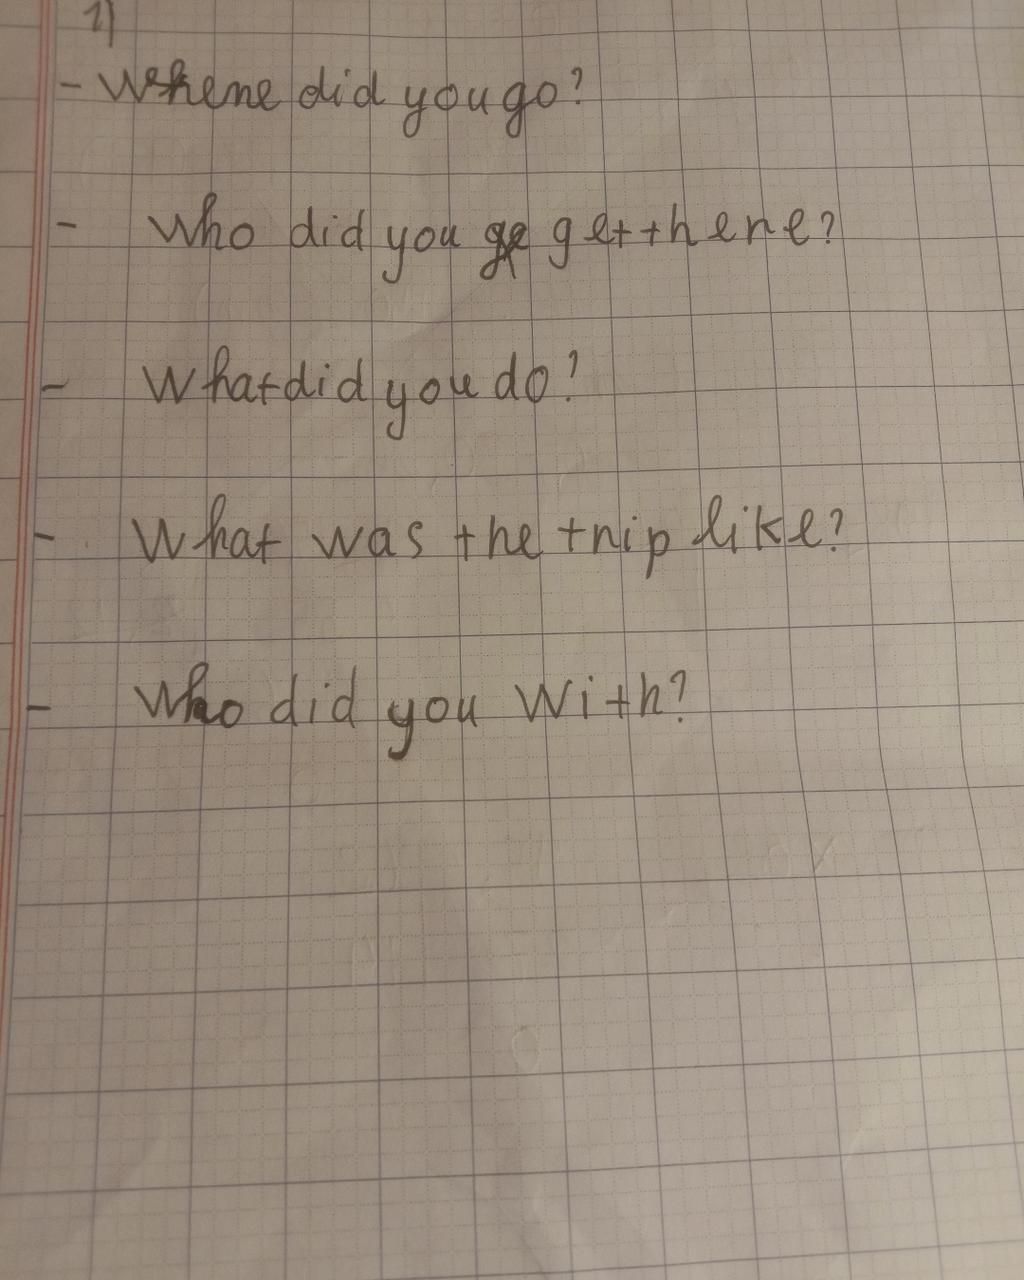 1)
- Where did you go?
- Who did you get there?
- What did you do?
- What was the trip like?
- Who did you with?